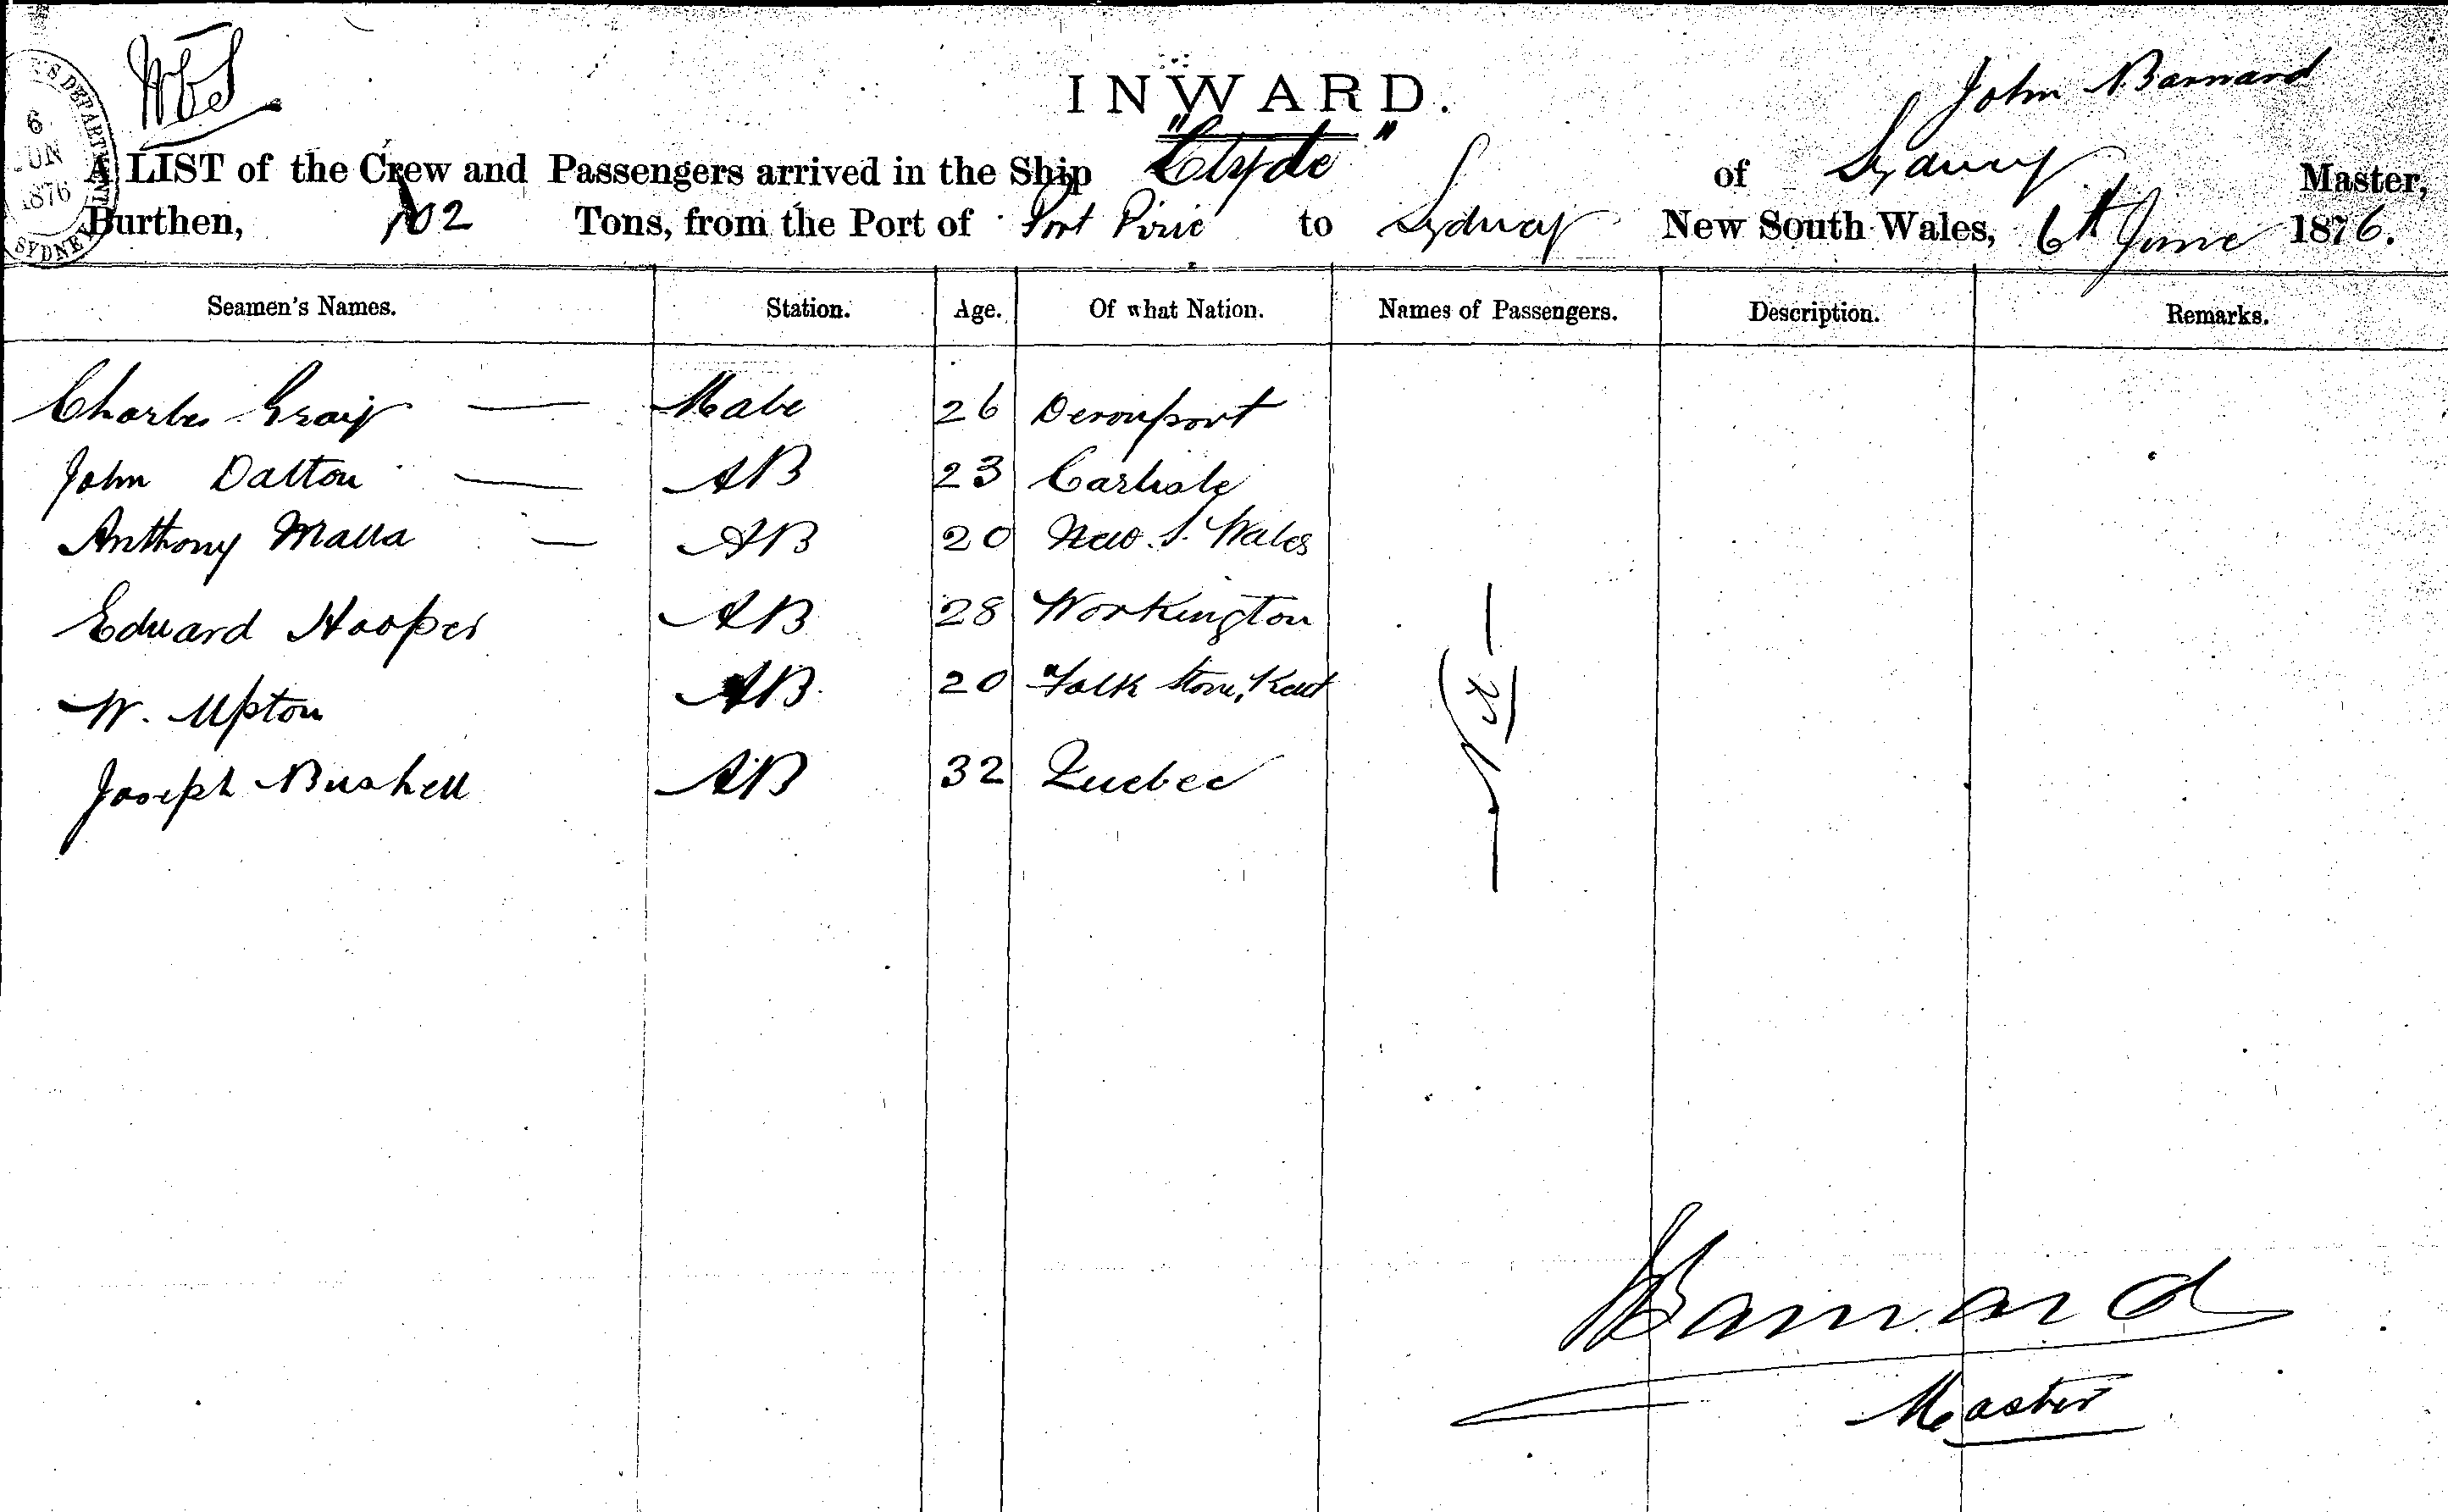 INWARD.
John Barnard
S DEPARTMENT
6
JUN
1876
SYDNEY
A LIST of the Crew and Passengers arrived in the Ship "Clyde" of Sydney Master,
Burthen, 102 Tons, from the Port of Port Pirie to Sydney New South Wales, 6th June 1876.
Seamen's Names. Station. Age. Of what Nation. Names of Passengers. Description. Remarks.
Charles Graig — Mate 26 Devonport
John Dalton — AB 23 Carlisle
Anthony Malla — AB 20 New S. Wales
Edward Hooper AB 28 Workington
W. Upton AB 20 Folk Stone, Kent
Joseph Bushell AB 32 Quebec
— Nil —
JBarnard
Master